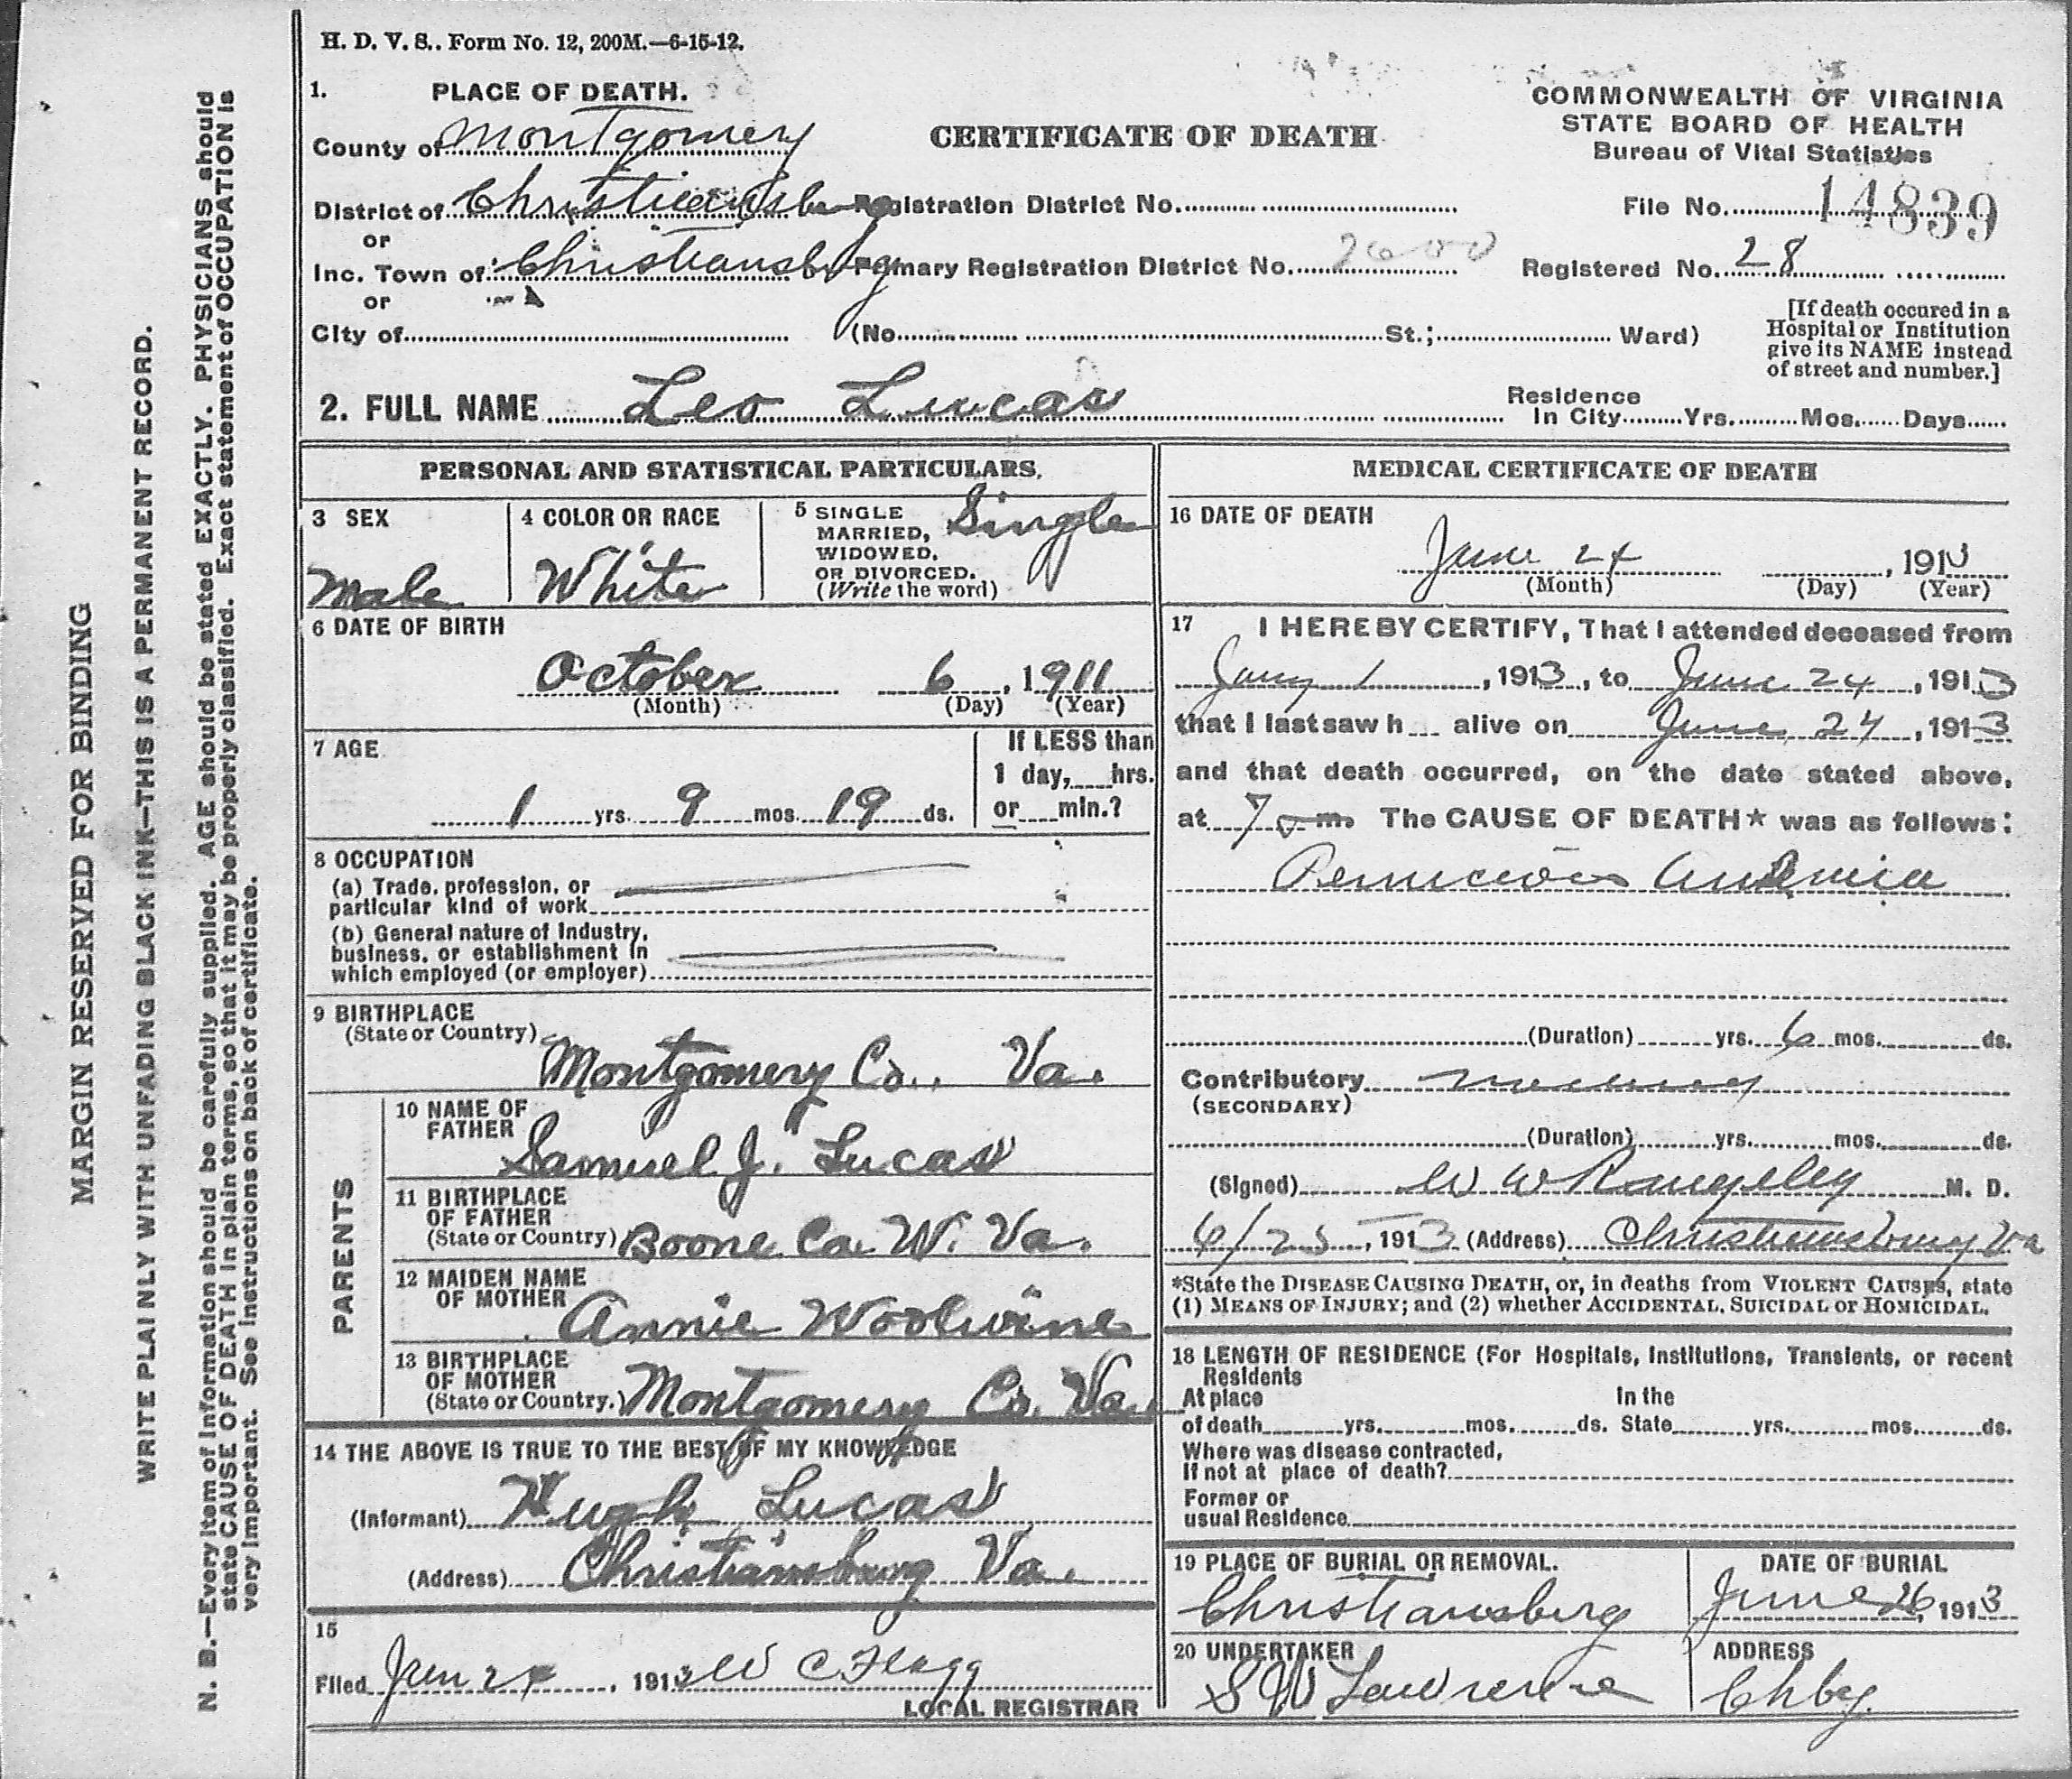 H. D. V. S.. Form No. 12, 200M.—6-15-12.
1. PLACE OF DEATH.
County of Montgomery
CERTIFICATE OF DEATH
COMMONWEALTH OF VIRGINIA
STATE BOARD OF HEALTH
Bureau of Vital Statistics
District of Christiansburg Registration District No.
File No. 14839
or
Inc. Town of Christiansburg Primary Registration District No. 2600
Registered No. 28
or
City of (No. St.; Ward)
[If death occured in a
Hospital or Institution
give its NAME instead
of street and number.]
2. FULL NAME Leo Lucas
Residence
In City Yrs. Mos. Days
PERSONAL AND STATISTICAL PARTICULARS.
3 SEX
Male
4 COLOR OR RACE
White
5 SINGLE
MARRIED,
WIDOWED.
OR DIVORCED.
(Write the word)
Single
6 DATE OF BIRTH
October 6, 1911
(Month) (Day) (Year)
7 AGE
1 yrs. 9 mos. 19 ds.
If LESS than
1 day, hrs.
or min.?
8 OCCUPATION
(a) Trade. profession, or
particular kind of work
(b) General nature of Industry,
business, or establishment in
which employed (or employer)
9 BIRTHPLACE
(State or Country)
Montgomery Co., Va.
PARENTS
10 NAME OF
FATHER
Samuel J. Lucas
11 BIRTHPLACE
OF FATHER
(State or Country) Boone Co. W. Va.
12 MAIDEN NAME
OF MOTHER
Annie Woolwine
13 BIRTHPLACE
OF MOTHER
(State or Country.) Montgomery Co. Va.
14 THE ABOVE IS TRUE TO THE BEST OF MY KNOWLEDGE
(Informant) Hugh Lucas
(Address) Christiansburg Va.
15
Filed Jun 24, 1913 W C Flagg
LOCAL REGISTRAR
MEDICAL CERTIFICATE OF DEATH
16 DATE OF DEATH
June 24, 1913
(Month) (Day) (Year)
17 I HEREBY CERTIFY, That I attended deceased from
Jany 1, 1913, to June 24, 1913
that I last saw h alive on June 24, 1913
and that death occurred, on the date stated above,
at 7 m. The CAUSE OF DEATH* was as follows:
Pernicious Anemia
(Duration) yrs. 6 mos. ds.
Contributory
(SECONDARY)
(Duration) yrs. mos. ds.
(Signed) W W Rangeley M. D.
6/25, 1913 (Address) Christiansburg Va
*State the DISEASE CAUSING DEATH, or, in deaths from VIOLENT CAUSES, state
(1) MEANS OF INJURY; and (2) whether ACCIDENTAL, SUICIDAL or HOMICIDAL.
18 LENGTH OF RESIDENCE (For Hospitals, Institutions, Transients, or recent
Residents
At place In the
of death yrs. mos. ds. State yrs. mos. ds.
Where was disease contracted,
If not at place of death?
Former or
usual Residence
19 PLACE OF BURIAL OR REMOVAL.
Christiansburg
DATE OF BURIAL
June 26, 1913
20 UNDERTAKER
S W Lawrence
ADDRESS
Chbg.
MARGIN RESERVED FOR BINDING
WRITE PLAINLY WITH UNFADING BLACK INK—THIS IS A PERMANENT RECORD.
N. B.—Every item of information should be carefully supplied. AGE should be stated EXACTLY. PHYSICIANS should
state CAUSE OF DEATH in plain terms, so that it may be properly classified. Exact statement of OCCUPATION is
very important. See instructions on back of certificate.